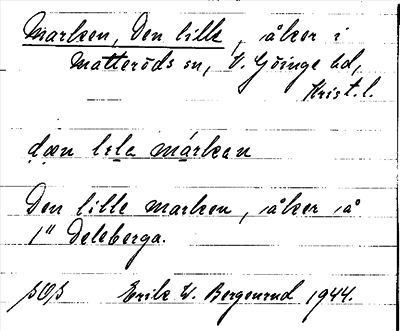 Marken, Den lille, åker i
Matteröds sn, V. Göinge hd,
Krist. l.
dæn lıla márkan
Den lille marken, åker å
1" Deleberga.
Erik W. Bergenrud 1944.